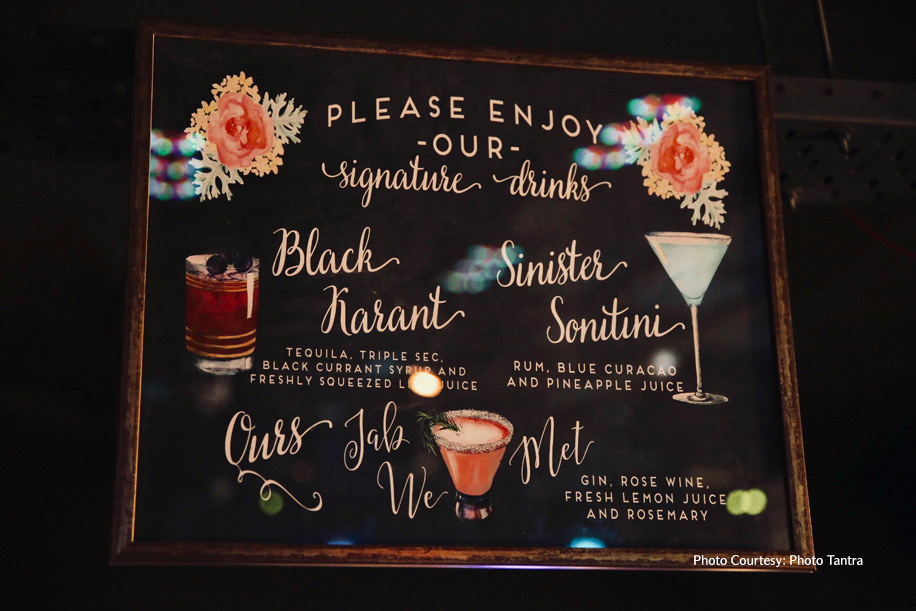 PLEASE ENJOY
-OUR-
signature drinks
Black
Karant
TEQUILA, TRIPLE SEC,
BLACK CURRANT SYRUP AND
FRESHLY SQUEEZED JUICE
Sinister
Sonitini
RUM, BLUE CURACAO
AND PINEAPPLE JUICE
Ours Jab
We Met
GIN, ROSE WINE,
FRESH LEMON JUICE
AND ROSEMARY
Photo Courtesy: Photo Tantra